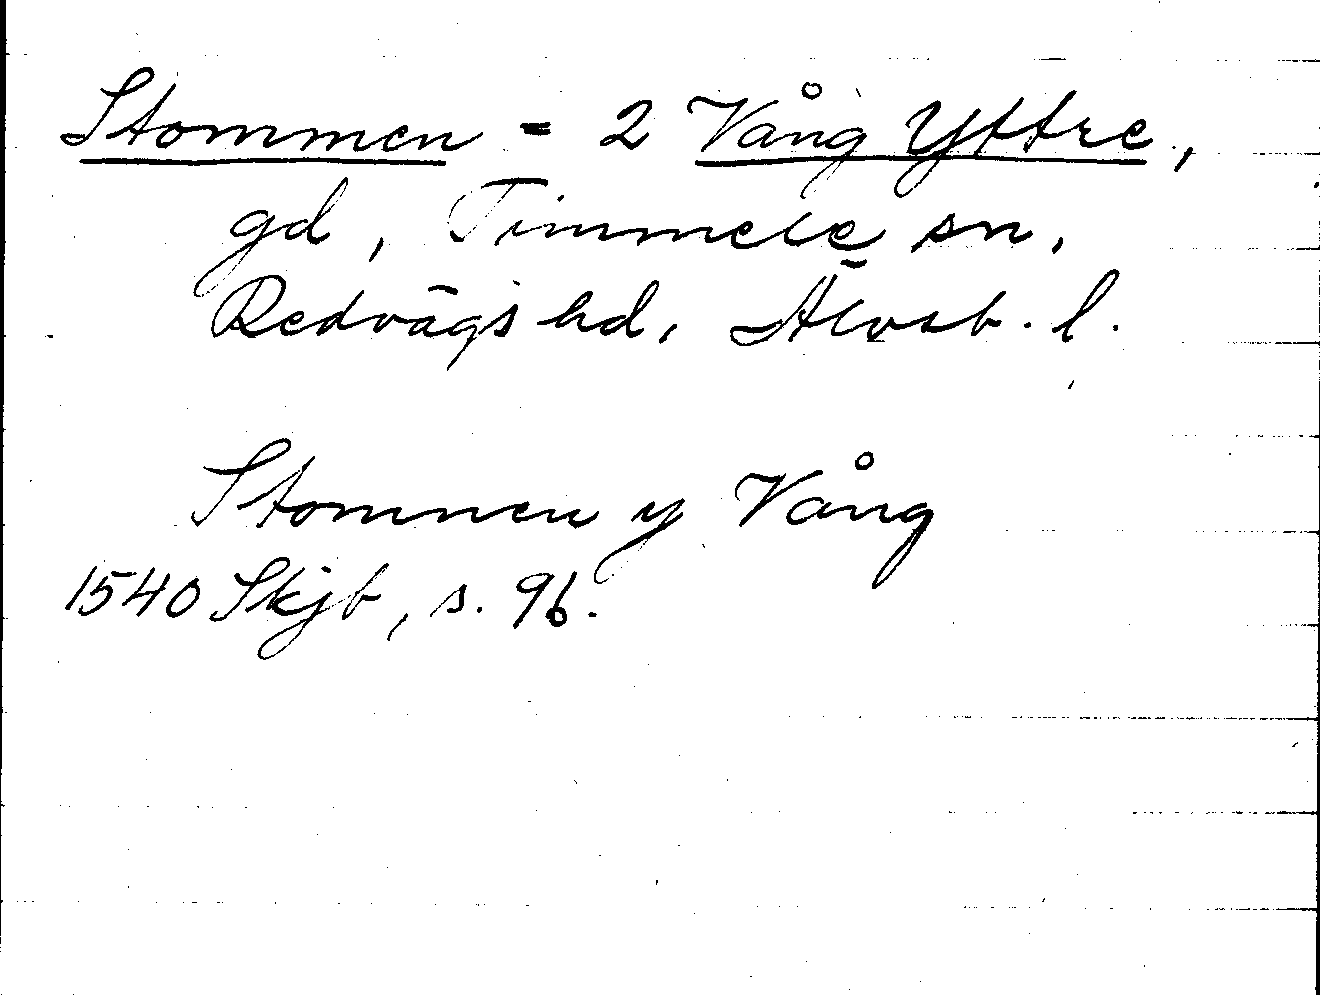 Stommen = 2 Vång Yttre,
gd, Timmele sn,
Redvägs hd, Älvsb. l.
Stommen y Vång
1540 Skjb, s. 96.